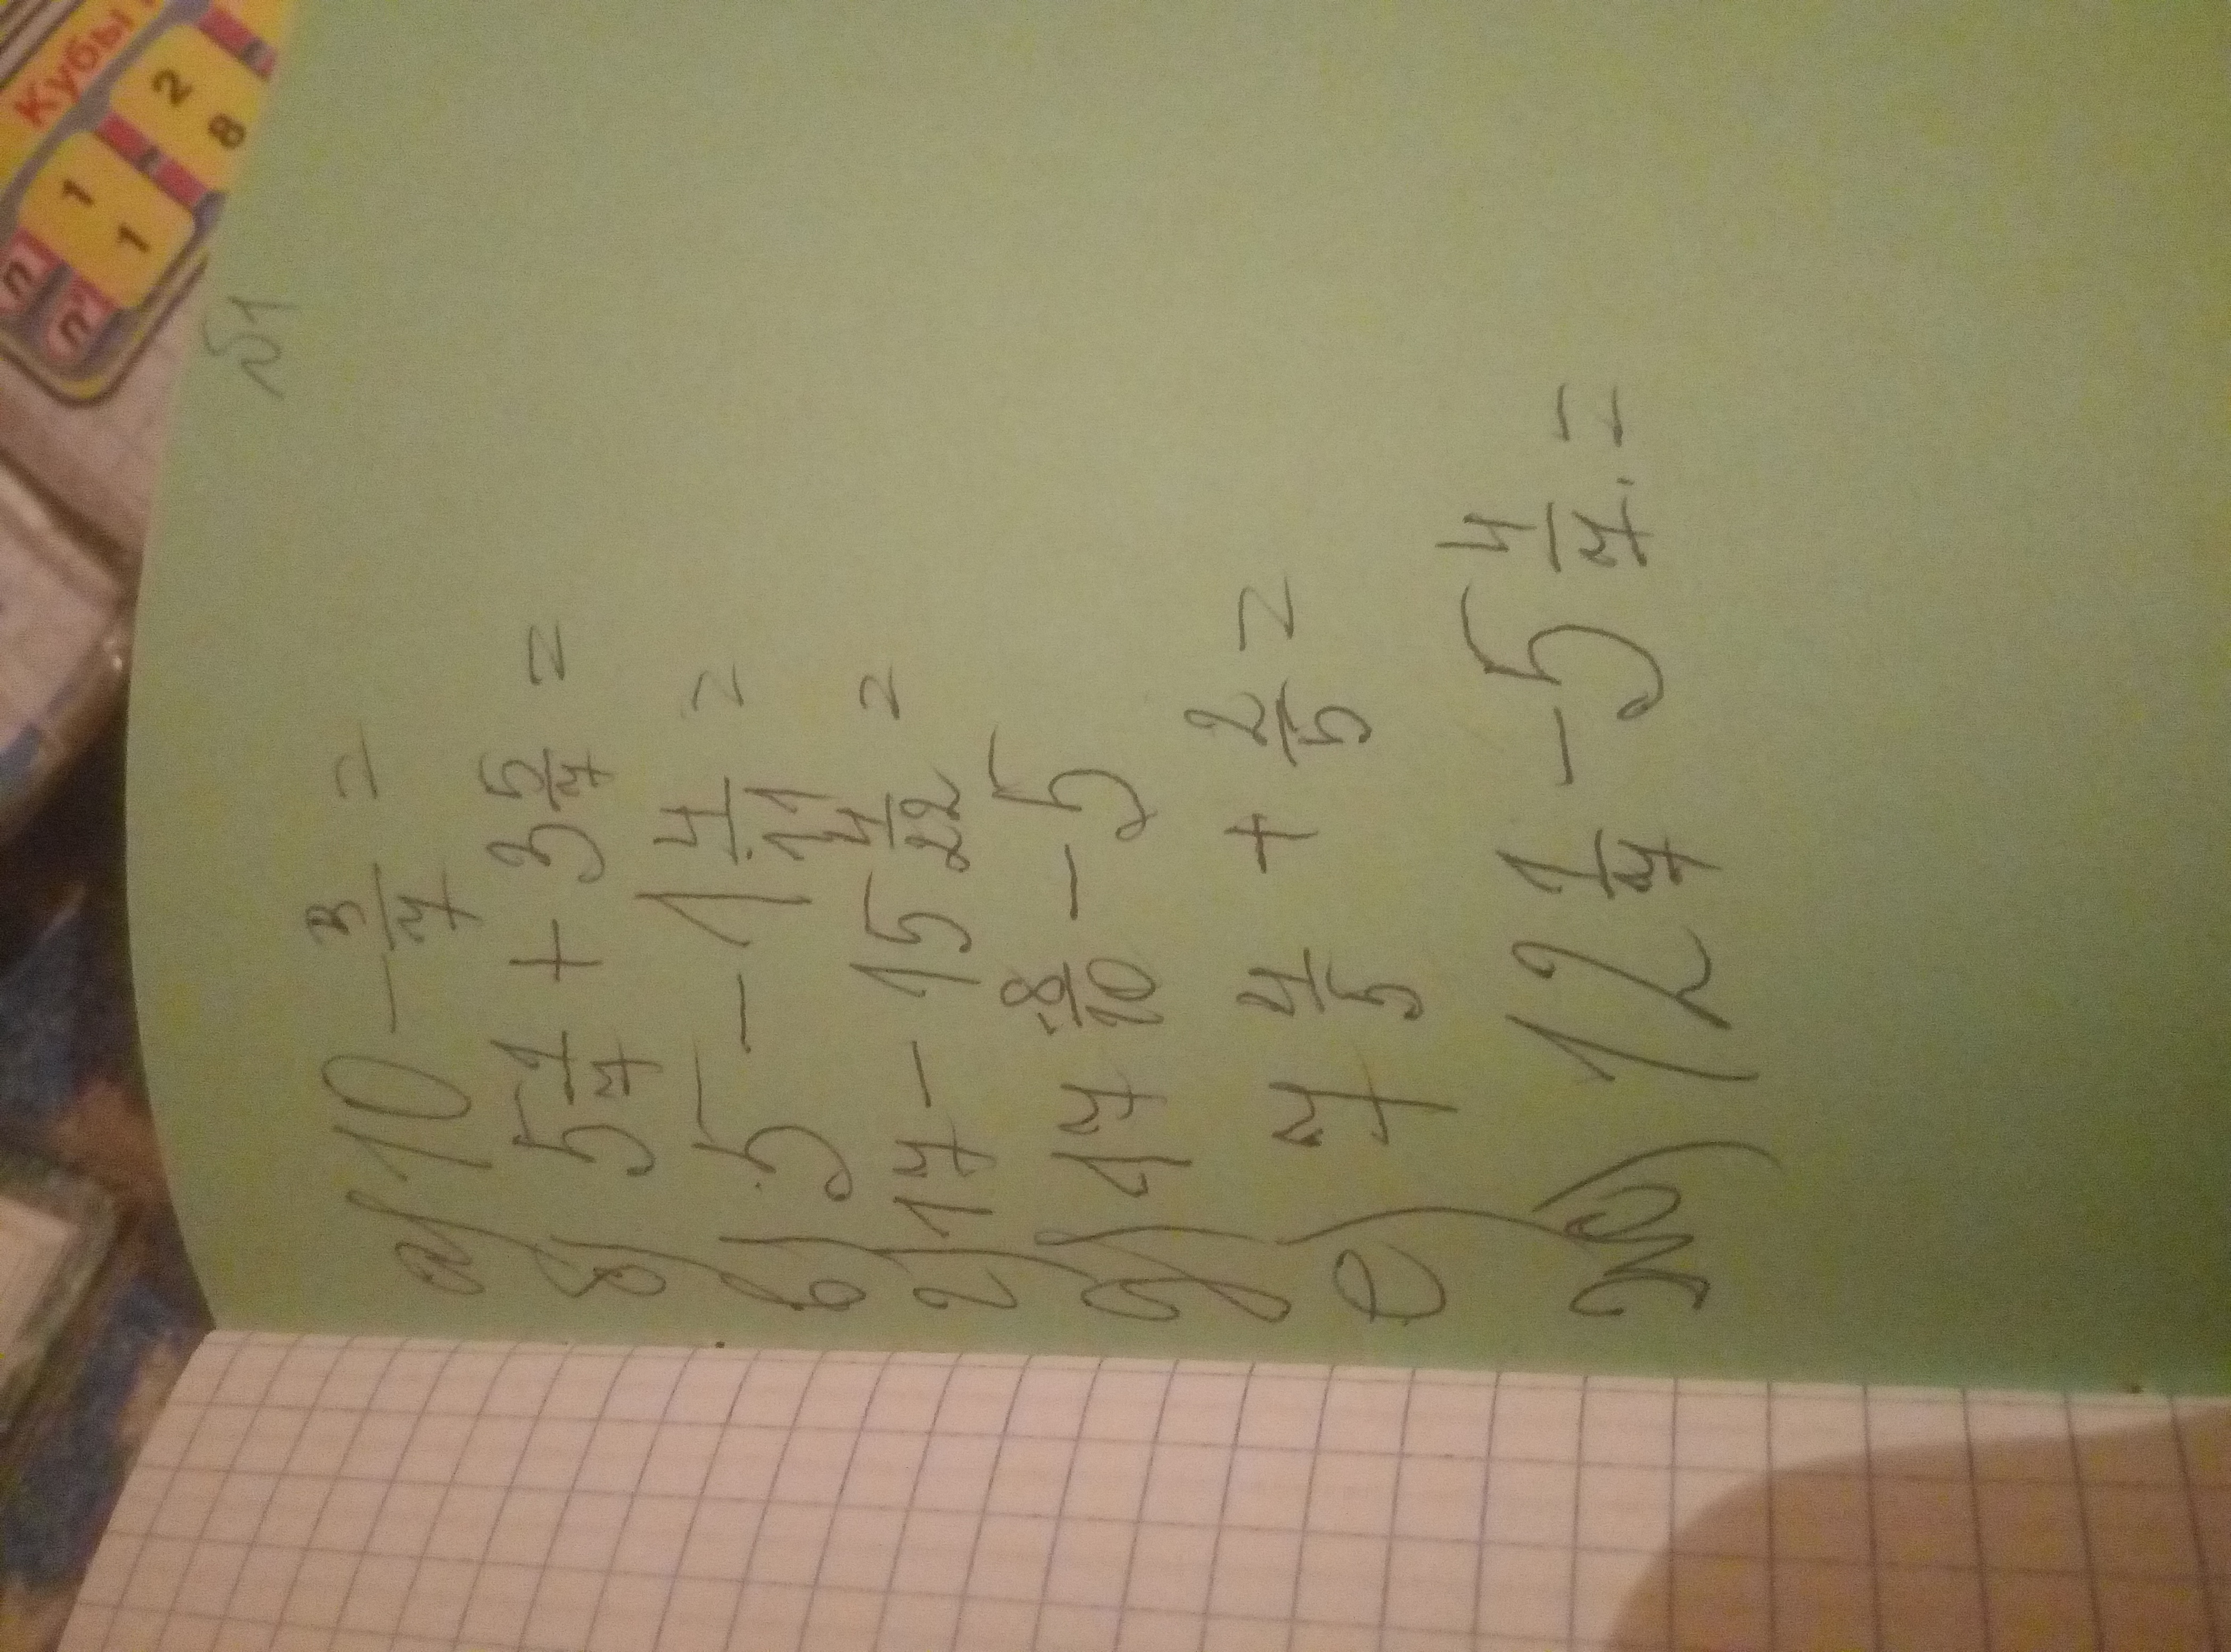 №1
а) 10 - 3/7 =
б) 5 1/7 + 3 5/7 =
в) 5 - 1 4/11 =
г) 17 - 15 4/22 =
д) 17 8/10 - 5
е) 7 4/5 + 2/5 =
ж) 12 1/7 - 5 4/7 =
Кубы
n 1 2
n³ 1 8